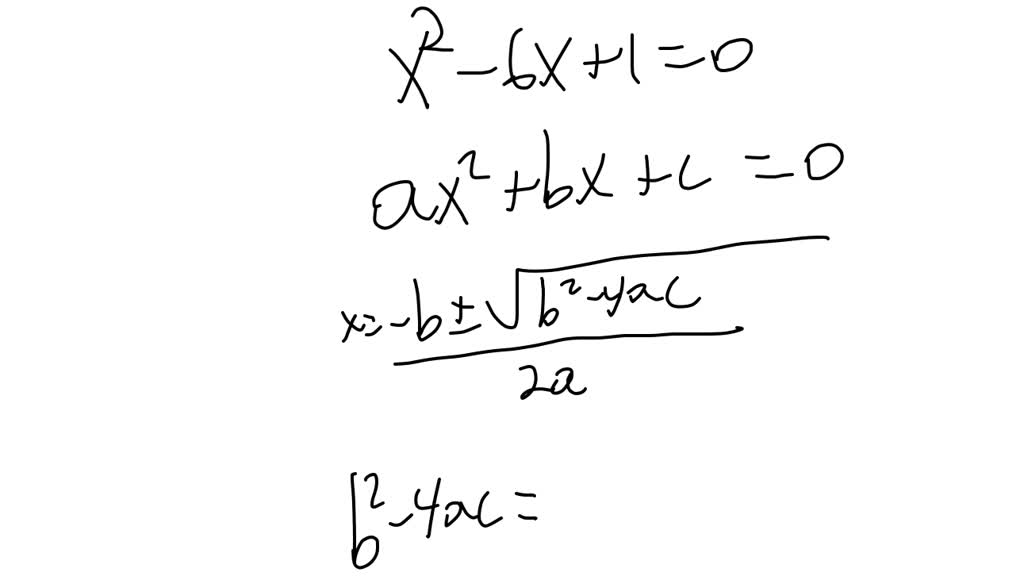 x² - 6x + 1 = 0
ax² + bx + c = 0
x = -b ± √(b² - 4ac)
2a
b² - 4ac =